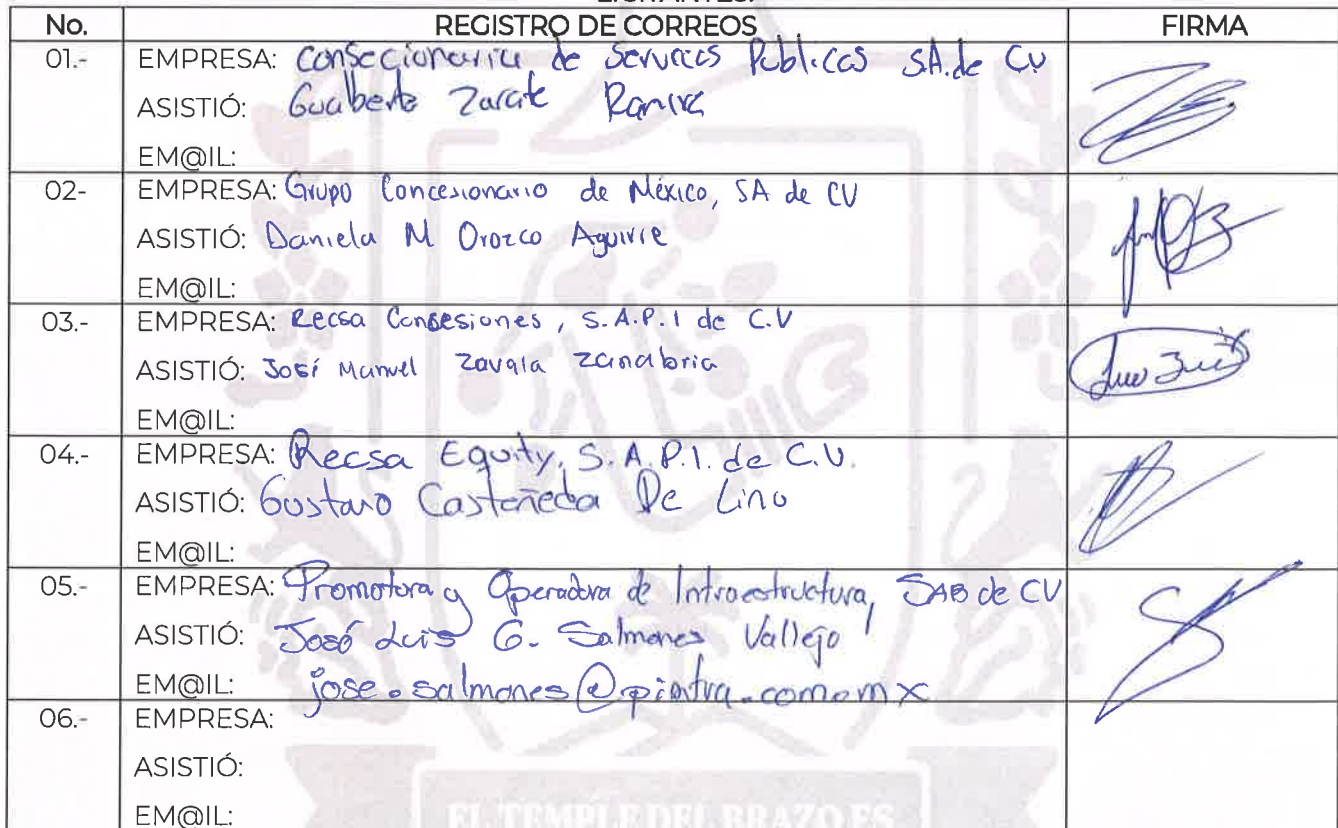 LICITANTES.
No. REGISTRO DE CORREOS FIRMA
01.- EMPRESA: Consecionaria de Servicios Publicos SA. de CV
ASISTIÓ: Gualberto Zarate Ramirez
EM@IL:
02- EMPRESA: Grupo Concesionario de México, SA de CV
ASISTIÓ: Daniela M Orozco Aguirre
EM@IL:
03.- EMPRESA: Recsa Consesiones, S.A.P.I de C.V
ASISTIÓ: José Manuel Zavala Zanabria
EM@IL:
04.- EMPRESA: Recsa Equity, S.A.P.I. de C.V.
ASISTIÓ: Gustavo Castañeda De Lino
EM@IL:
05.- EMPRESA: Promotora y Operadora de Infraestructura, SAB de CV
ASISTIÓ: José Luis G. Salmones Vallejo
EM@IL: jose.salmones@pinfra.com.mx
06.- EMPRESA:
ASISTIÓ:
EM@IL:
EL TEMPLE DEL BRAZO ES